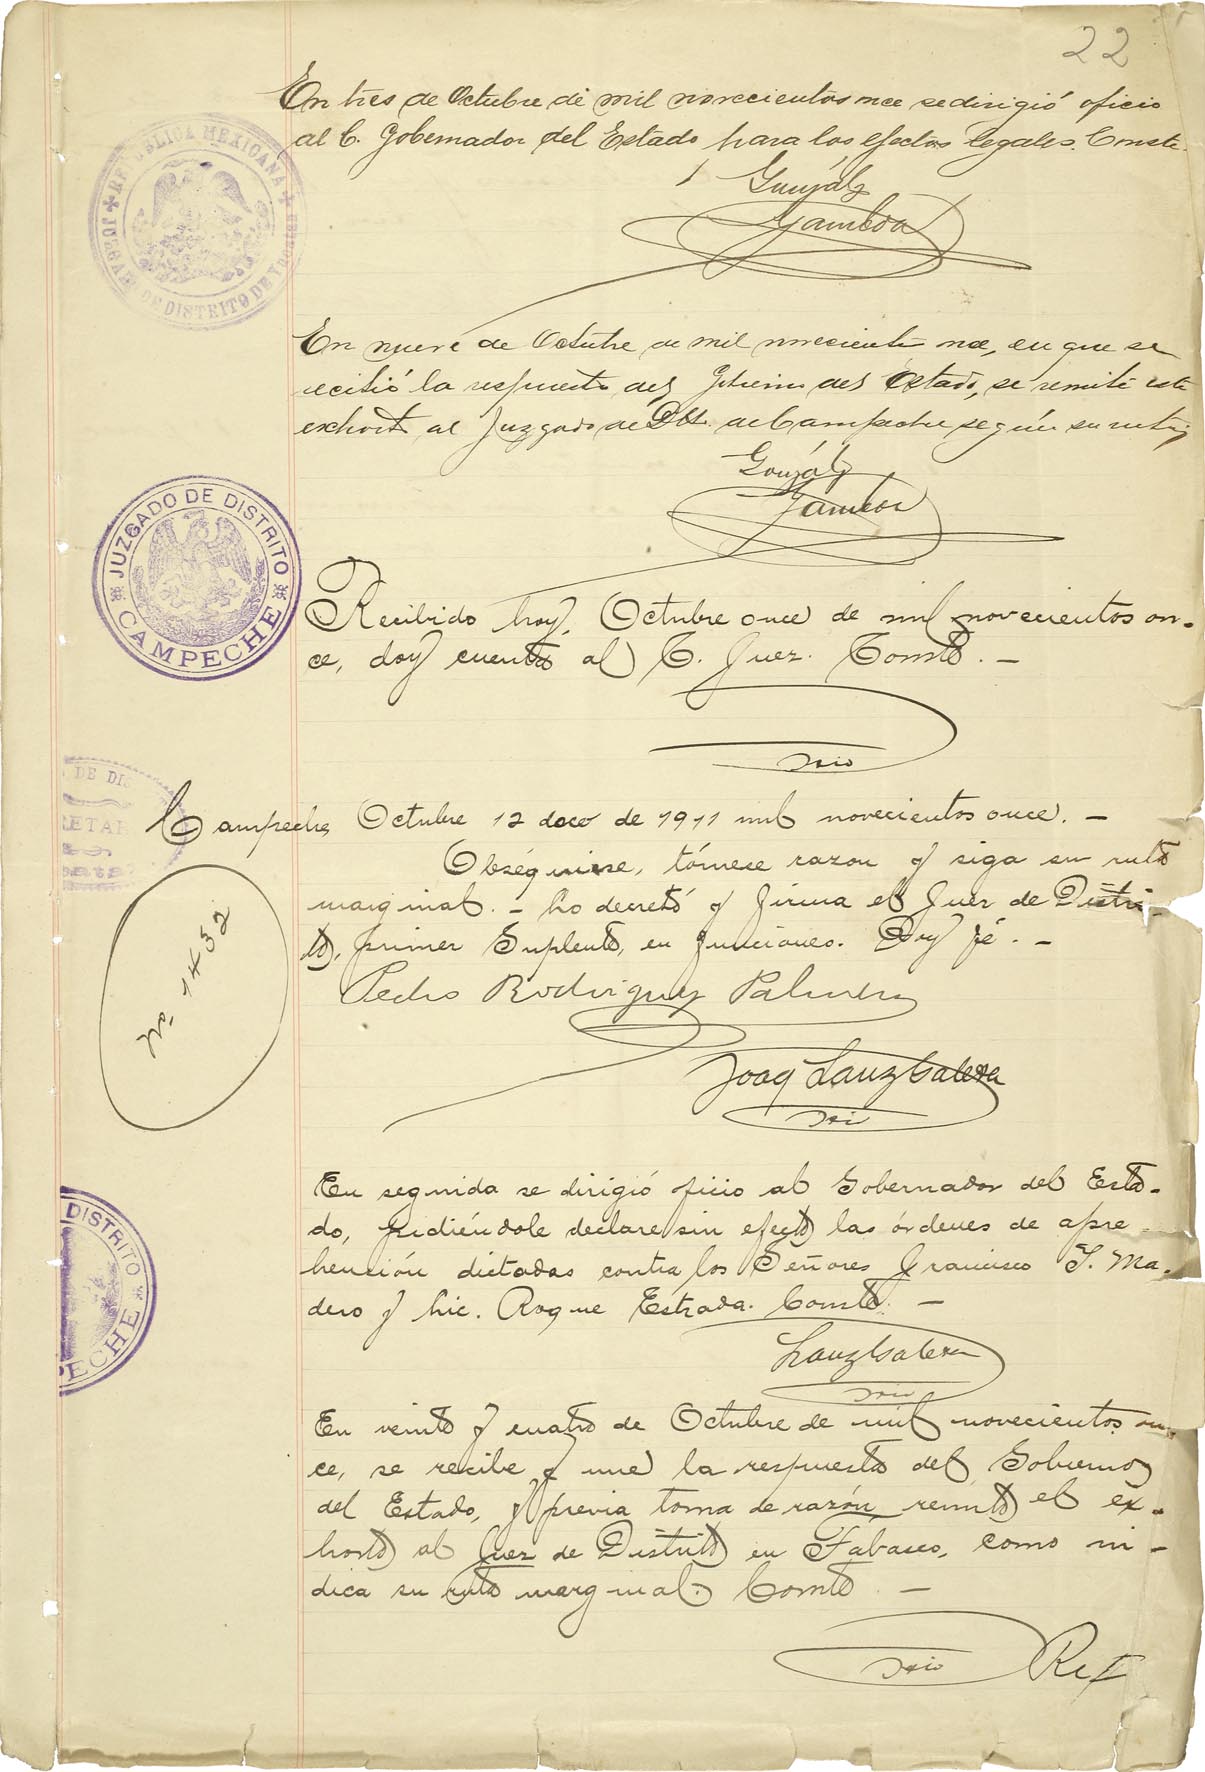 22
En tres de Octubre de mil novecientos once se dirigió oficio
al C. Gobernador del Estado para los efectos legales. Conste.
Gonzálz
Gamboa
REPUBLICA MEXICANA
JUZGADO DE DISTRITO DE Yucatan
En nueve de Octubre de mil novecientos once, en que se
recibió la respuesta del Gobierno del Estado, se remite este
exhorto al Juzgado de Dto. de Campeche según su ruta
Gonzálz
Gamboa
JUZGADO DE DISTRITO
CAMPECHE
Recibido hoy, Octubre once de mil novecientos on-
ce, doy cuenta al C. Juez. Conste. -
Srio
DE DIS
RETAR
Campeche, Octubre 12 doce de 1911 mil novecientos once. -
Obséquiese, tómese razon y siga su ruta
marginal. - Lo decretó y firma el Juez de Distri-
to, primer Suplente, en funciones. Doy fé. -
No. 1432
Pedro Rodriguez Palmero
Joaq Lanz Galera
Srio
En seguida se dirigió oficio al Gobernador del Esta-
do, pidiéndole declare sin efecto las órdenes de apre-
hención dictadas contra los Señores Francisco I. Ma-
dero y Lic. Roque Estrada. Conste. -
DISTRITO
PECHE
Lanz Galera
Srio
En veinte y cuatro de Octubre de mil novecientos on-
ce, se recibe y une la respuesta del Gobierno
del Estado, y previa toma de razón, remito el ex-
horto al Juez de Distrito en Tabasco, como in-
dica su ruta marginal. Conste. -
Srio